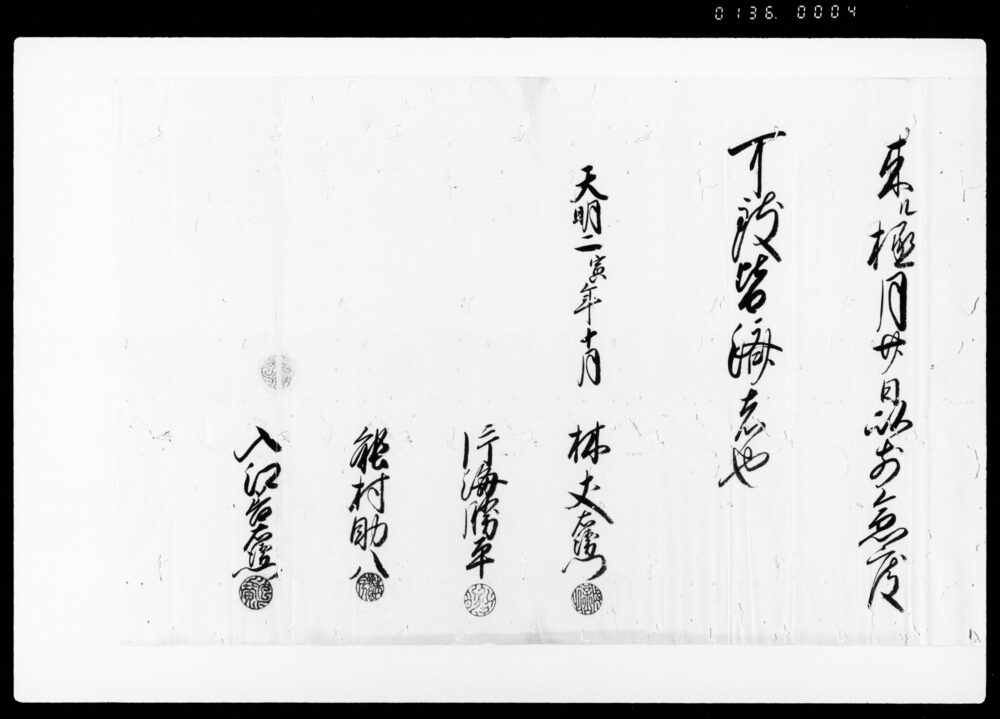 0136.0004
来ル極月廿日以前急度
可致皆済者也
天明二寅年十月
林丈左衛門
海勝平
村助八
入江